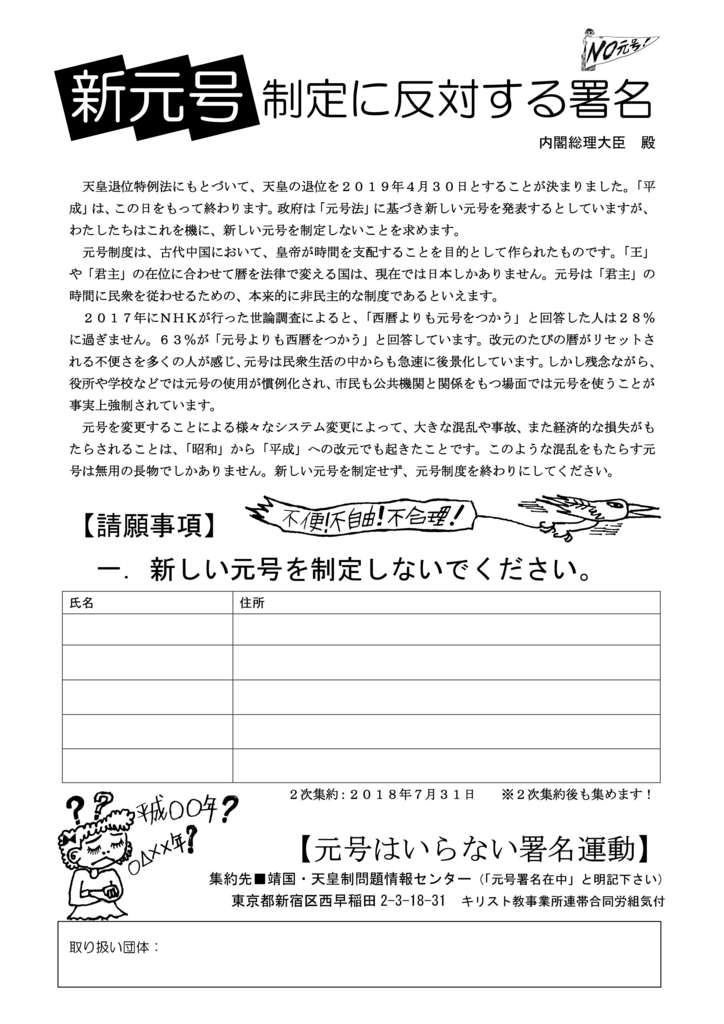 NO元号!
新元号 制定に反対する署名
内閣総理大臣　殿
　天皇退位特例法にもとづいて、天皇の退位を２０１９年４月３０日とすることが決まりました。「平
成」は、この日をもって終わります。政府は「元号法」に基づき新しい元号を発表するとしていますが、
わたしたちはこれを機に、新しい元号を制定しないことを求めます。
　元号制度は、古代中国において、皇帝が時間を支配することを目的として作られたものです。「王」
や「君主」の在位に合わせて暦を法律で変える国は、現在では日本しかありません。元号は「君主」の
時間に民衆を従わせるための、本来的に非民主的な制度であるといえます。
　２０１７年にＮＨＫが行った世論調査によると、「西暦よりも元号をつかう」と回答した人は２８％
に過ぎません。６３％が「元号よりも西暦をつかう」と回答しています。改元のたびの暦がリセットさ
れる不便さを多くの人が感じ、元号は民衆生活の中からも急速に後景化しています。しかし残念ながら、
役所や学校などでは元号の使用が慣例化され、市民も公共機関と関係をもつ場面では元号を使うことが
事実上強制されています。
　元号を変更することによる様々なシステム変更によって、大きな混乱や事故、また経済的な損失がも
たらされることは、「昭和」から「平成」への改元でも起きたことです。このような混乱をもたらす元
号は無用の長物でしかありません。新しい元号を制定せず、元号制度を終わりにしてください。
【請願事項】
不便!不自由!不合理!
一．新しい元号を制定しないでください。
氏名　住所
２次集約：２０１８年７月３１日　　※２次集約後も集めます！
? ? 平成〇〇年?
〇△××年?
【元号はいらない署名運動】
集約先■靖国・天皇制問題情報センター（「元号署名在中」と明記下さい）
東京都新宿区西早稲田 2-3-18-31　キリスト教事業所連帯合同労組気付
取り扱い団体：